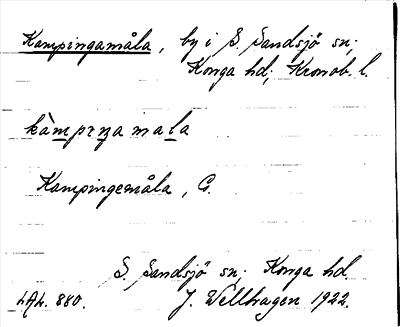 Kampingamåla, by i S. Sandsjö sn;
Konga hd; Kronob. l.
kàmpıŋa mala
Kampingemåla, G.
S. Sandsjö sn; Konga hd.
LAL. 880. J. Wellhagen 1922.